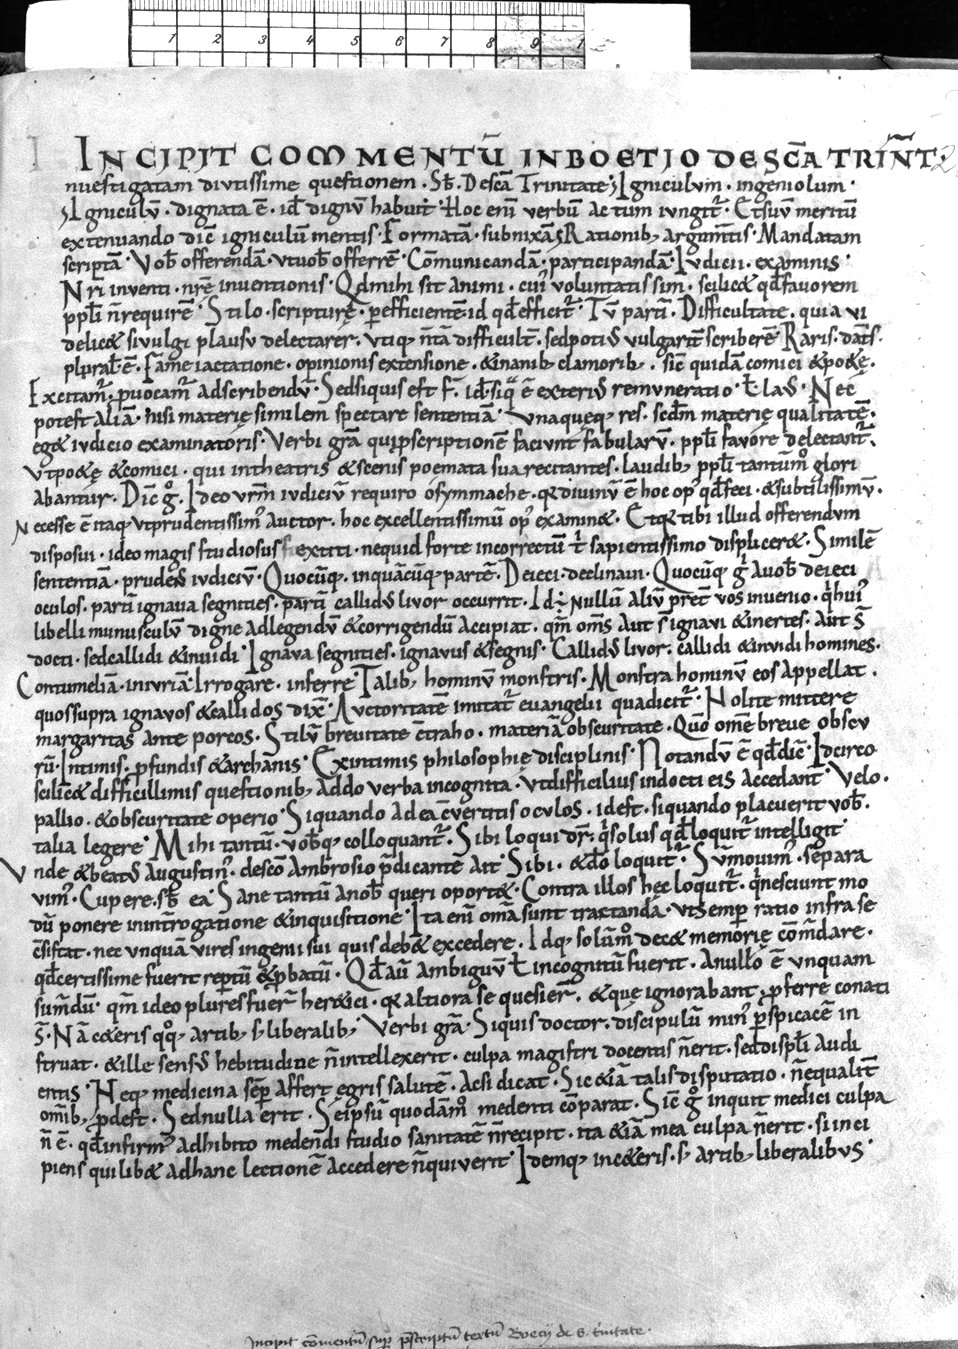 1 2 3 4 5 6 7 8 9 1
INCIPIT COMMENTŪ IN BOETIO DE SCĀ TRINIT̄·
nuestigatam diutissime questionem · Sb̄ · De scā Trinitate · Igniculum · ingeniolum ·
Igniculū · dignata ē · id dignū habuit · Hoc eni͞ verbū ac tum iungit᷑ · Et suū meritū
extenuando dic̄ igniculū mentis · Formatā · subnixā Rationib; argum̄tis · Mandatam
scriptā · Vob̄ offerendā · ut uob̄ offerrē · Cōmunicandā · participandā · Iudicii · examinis ·
Nr̄i inventi · nr̄ę inuentionis · Qd mihi sit animi · cui᷒ voluntatis sim · scilic& qd̄ fauorem
ppl̄i n̄ requirē · Stilo · scripturę · p̄efficientē id qd̄ efficit᷑ · Tū partī · Difficultate · quia vi
delic& si vulgi plausu delectarer · utiq; n̄ tā difficult̄ · sed poti᷒ vulgarit̄ scriberē · Raris · dat̄s ·
plural̄ ē · Famę iactatione · opinionis extensione · & inanib; clamorib; · sic̄ quidā comici & po&ę ·
Excitam᷑ · p̱uocam᷑ ad scribendū · Sed siquis est f̄ · id · siq̄ ē exteri᷒ remuneratio · t̄ la᷒ · Nec
potest aliā · Nisi materię similem spectare sententiā · Unaqueq; res · scd̄m materię qualitatē ·
eg& iudicio examinatoris · Verbi gr̄a qui p̱scriptionē faciunt fabularū · ppl̄i fauore delectant᷑ ·
ut po&ę & comici · qui in theatris & scenis poemata sua recitantes · laudib; ppl̄i tantūm̊ glori
abantur · Dic̄ gͦ · Ideo vr̄m iudiciū requiro o symmache · q& diuinū ē hoc op᷒ qd̄ feci · & subtilissimū ·
Necesse ē itaq; ut prudentissim᷒ auctor · hoc excellentissimū op᷒ examin& · Et q& tibi illud offerendum
disposui · ideo magis studiosus extiti · ne quid forte incorrectū t̄ sapientissimo displicer& · Similē
sententiā · prudens iudiciū · Quocūq; · in quācūq; partē · Deieci · declinaui · Quocūq; gͦ a uob̄ deieci
oculos · partī ignaua segnities · partī callid᷒ livor occurrit · Id ÷ Nullū aliū pret̄ vos inuenio · q̄ hui᷒
libelli munusculū digne ad legendū & corrigendū accipiat · qm̄ om̄s aut s̄ ignaui & inertes · aut s̄
docti · sed callidi & inuidi · Ignaua segnities · ignauus & segnis · Callid᷒ livor · callidi & invidi homines ·
Contumeliā · iniuriā · Irrogare · inferre · Talib; hominū monstris · Monstra hominū eos appellat ·
quos supra ignauos & callidos dix᷒ · Auctoritatē imitat᷑ euangelii qua dicit᷑ · Nolite mittere
margaritas ante porcos · Stilū breuitate c̄traho · materiā obscuritate · Quō om̄e breue obscu
rū · Intimis · p̱fundis & archanis · Ex intimis philosophię disciplinis · Notandū ē qd̄ dic̄ · Idcirco
scilic& difficillimis questionib; addo verba incognita · ut difficilius indocti eis accedant · Velo ·
pallio · & obscuritate operio · Siquando ad ea c̄vertitis oculos · id est · siquando placuerit vob̄ ·
talia legere · Mihi tantū · vob̄q; colloquant᷑ · Sibi loqui dr̄ · q̄ solus qd̄ loquit᷑ intelligit ·
Unde & beat᷒ Augustin᷒ · de scō Ambrosio p̄dicantē ait · Sibi · & dō loquit᷑ · Sūmouim᷒ · separa
vim᷒ · Cupere · sb̄ ea · Sane tantū a nob̄ queri oport& · Contra illos hec loquit᷑ · q̄ nesciunt mo
dū ponere in int̄rogatione & inquisitione · Ita eni͞ om̄a sunt tractanda · ut semp̱ ratio infra se
c̄sistat · nec unquā vires ingenii sui quis deb& excedere · Idq; solūm̊ dec& memorię cōm̄dare ·
qd̄ certissime fuerit rep̱tū & p̱batū · Qd̄ aū ambiguū t̄ incognitū fuerit · A nullo ē unquam
sum̄dū · qm̄ ideo plures fuer̄ her&ici · q& altiora se quesier̄ · & quę ignorabant p̱ferre conati
s̄ · Nā c&eris qͦq; artib; s; liberalib; · Verbi gr̄a · Siquis doctor · discipulū min᷒ p̱spicacē in
struat · & ille sens᷒ hebitudine n̄ intellexerit · culpa magistri docentis n̄ erit · sed discipl̄i audi
entis · Neq; medicina semp̱ affert egris salutē · Acsi dicat · Sic & iā talis disputatio · n̄ equalit̄
omīb; p̱dest · Sed nulla erit · Se ipsū quodam̊ medenti cōparat · Sic̄ gͦ inquit medici culpa
n̄ ē · qd̄ infirm᷒ adhibito medendi studio sanitatē n̄ recipit · ita & iā mea culpa n̄ erit · si inci
piens quilib& ad hanc lectionē accedere n̄ quiverit · Idemq; in c&eris · s; artib; liberalibus ·
Incipit cōmentū sup̱ p̄scriptū textū Boecii de s. t̄nitate ·